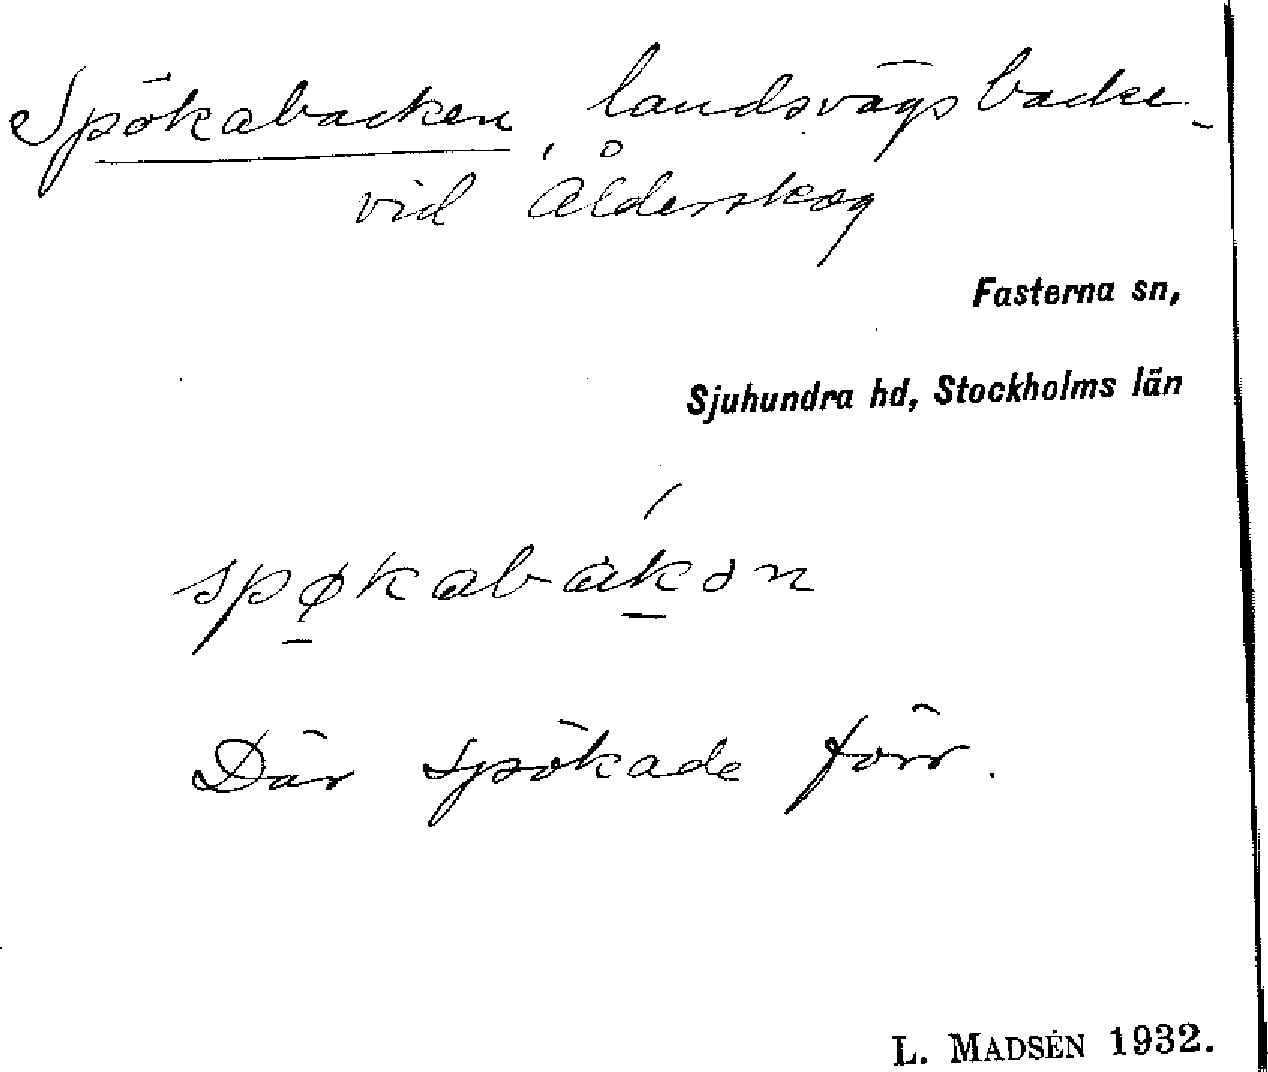 Spökabacken, landsvägsbacke
vid Ålderskog
Fasterna sn,
Sjuhundra hd, Stockholms län
spø̱kabáḵən
Där spökade förr.
L. MADSÉN 1932.